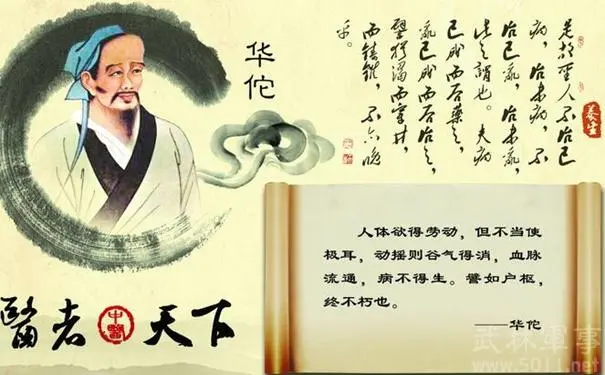 华佗
是故聖人不治已
病，治未病，不
治已亂，治未亂，
此之謂也。夫病
已成而后藥之，
亂已成而后治之，
譬猶渴而穿井，
而鑄錐，不亦晚
乎。
養生
人体欲得劳动，但不当使
极耳，动摇则谷气得消，血脉
流通，病不得生。譬如户枢，
终不朽也。
——华佗
醫者中醫天下
武林軍事
www.5011.net